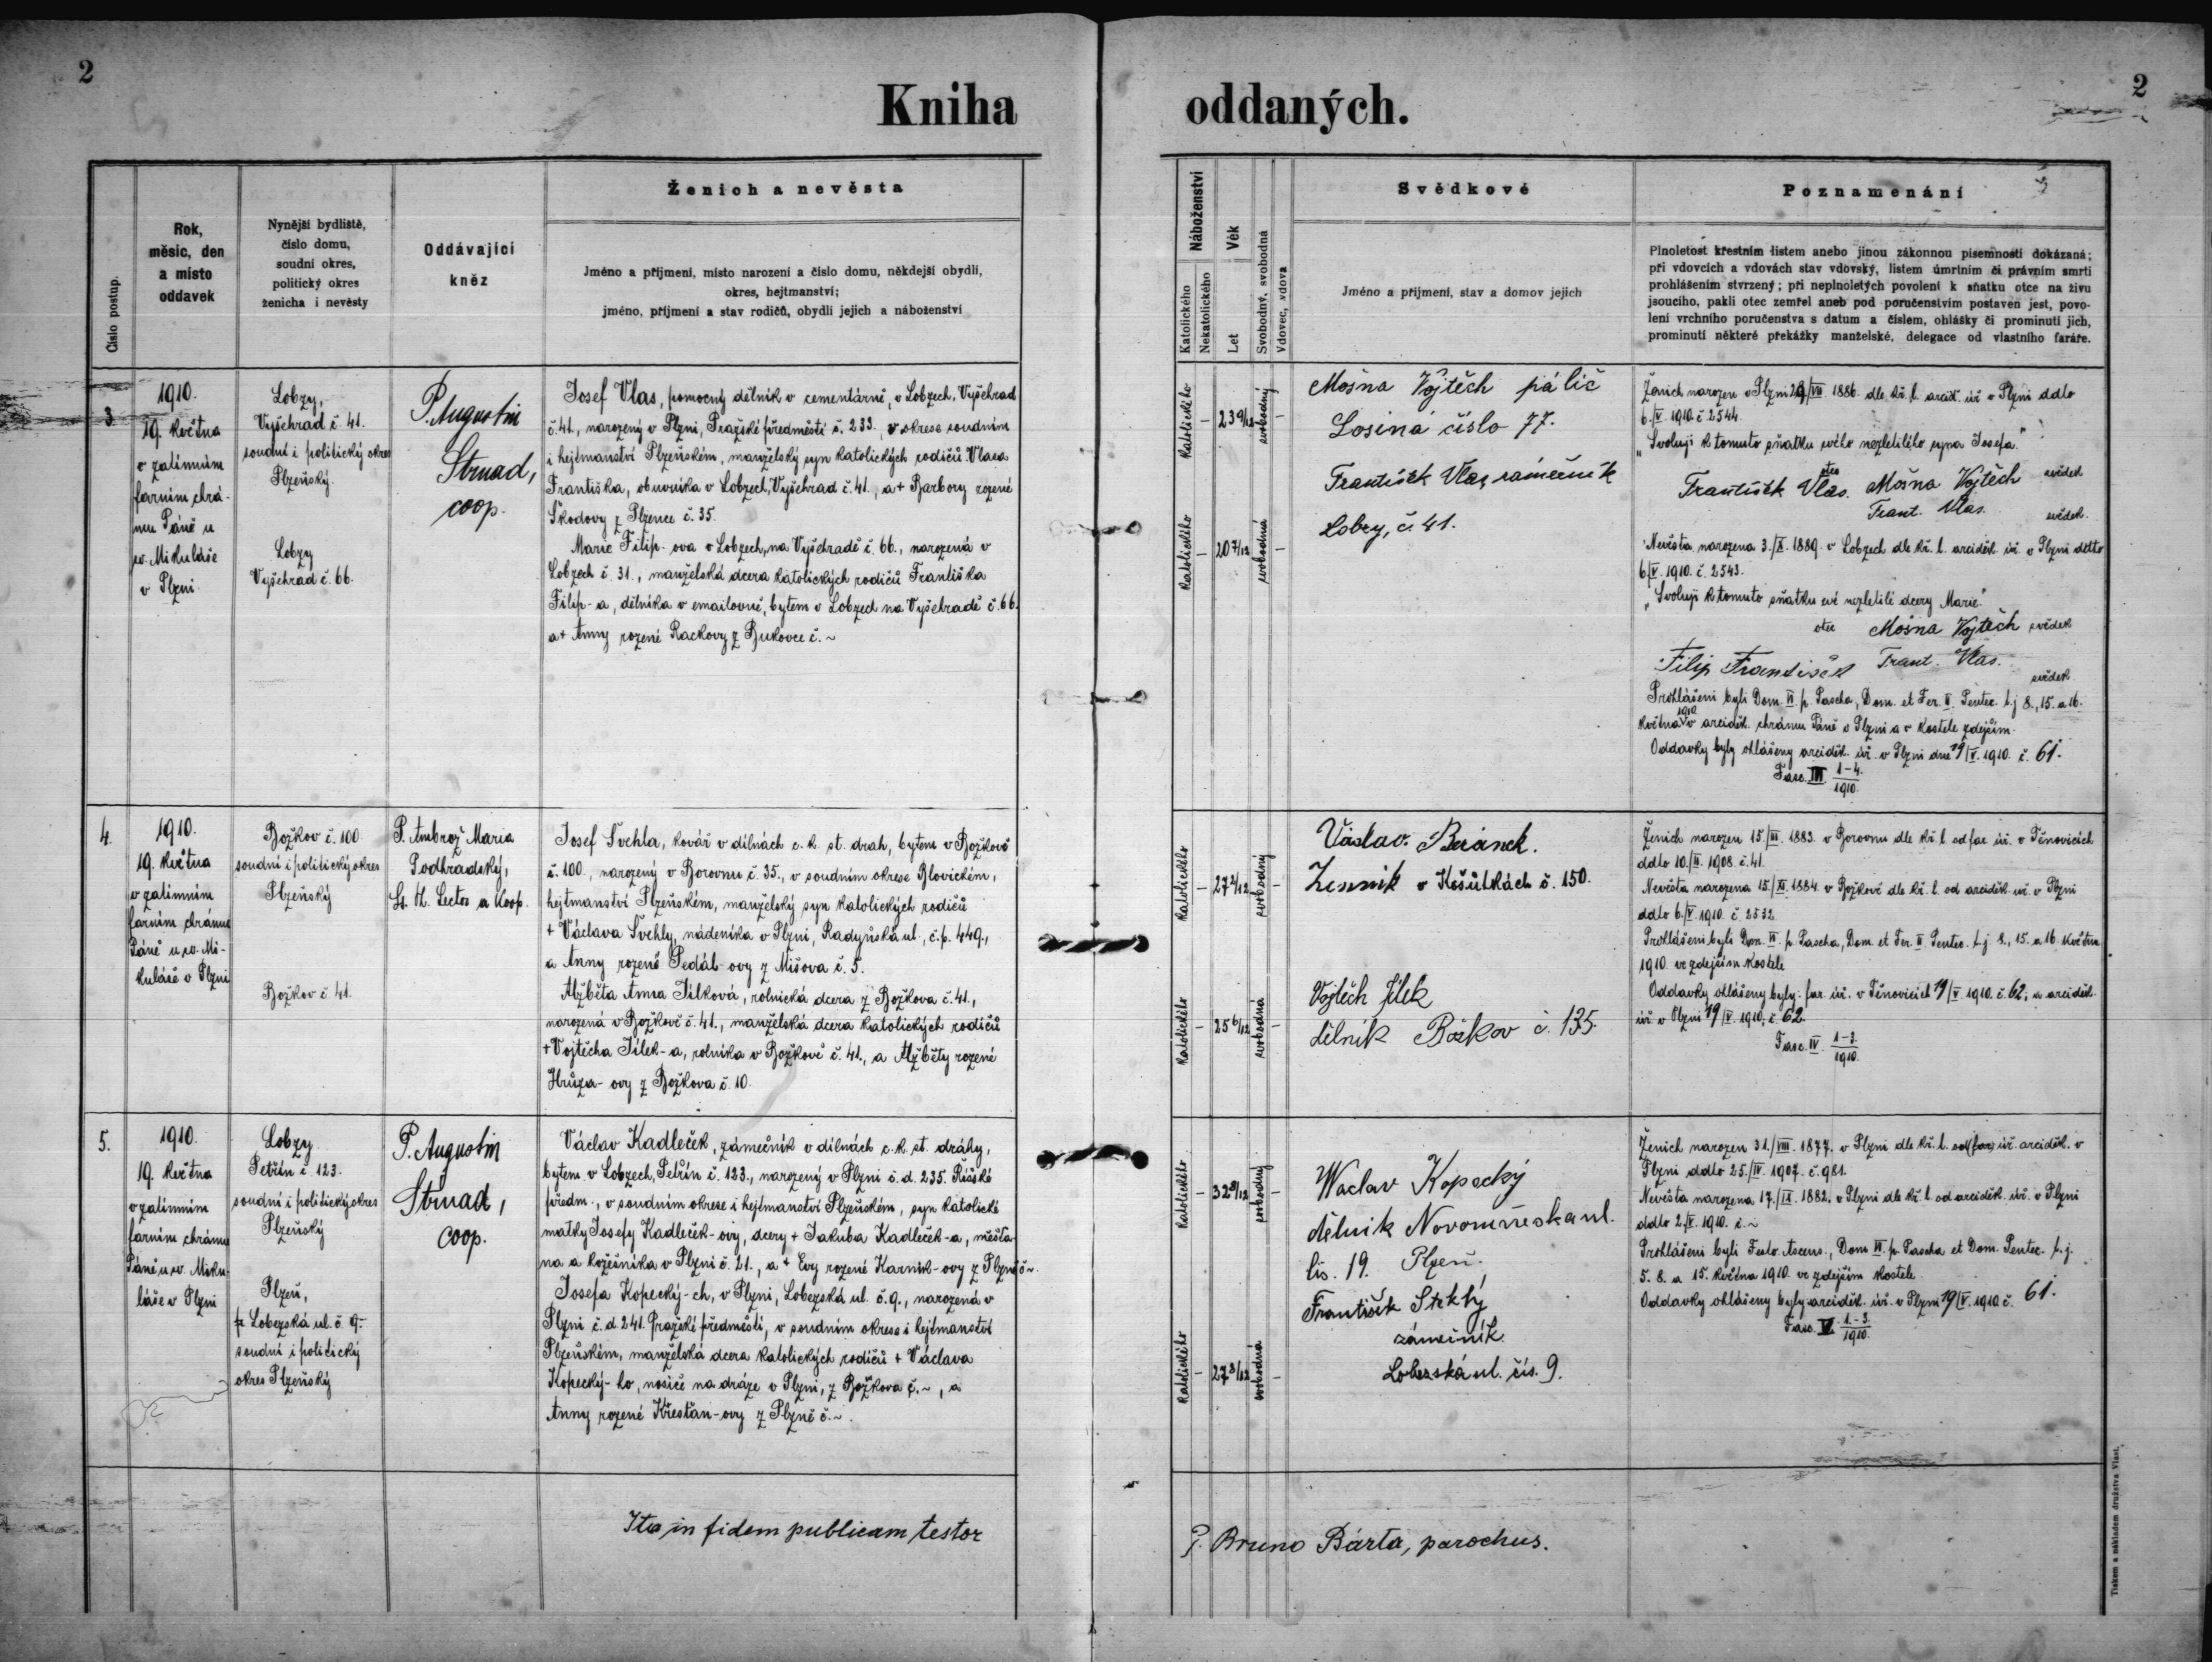 2
2
Kniha
oddaných.
Číslo postup.
Rok,
měsíc, den
a místo
oddavek
Nynější bydliště,
číslo domu,
soudní okres,
politický okres
ženicha i nevěsty
Oddávající
kněz
Ženich a nevěsta
Jméno a příjmení, místo narození a číslo domu, někdejší obydlí,
okres, hejtmanství;
jméno, příjmení a stav rodičů, obydlí jejich a náboženství
Náboženství
Katolického
Nekatolického
Věk
Let
Svobodný, svobodná
Vdovec, vdova
Svědkové
Jméno a příjmení, stav a domov jejich
Poznamenání
Plnoletost křestním listem anebo jinou zákonnou písemností dokázaná;
při vdovcích a vdovách stav vdovský, listem úmrtním či právním smrti
prohlášením stvrzený; při neplnoletých povolení k sňatku otce na živu
jsoucího, pakli otec zemřel aneb pod poručenstvím postaven jest, povo-
lení vrchního poručenstva s datum a číslem, ohlášky či prominutí jich,
prominutí některé překážky manželské, delegace od vlastního faráře.
3.
1910.
19. května
v zatímním
farním chrá-
mu Páně u
sv. Mikuláše
v Plzni.
Lobzy,
Vyšehrad č. 41.
soudní i politický okres
Plzeňský.
Lobzy
Vyšehrad č. 66.
P. Augustin
Strnad,
coop.
Josef Vlas, pomocný dělník v cementárně, v Lobzech, Vyšehrad
č. 41., narozený v Plzni, Pražské předměstí č. 233., v okrese soudním
i hejtmanství Plzeňském, manželský syn katolických rodičů Vlasa
Františka, obuvníka v Lobzech, Vyšehrad č. 41., a + Barbory rozené
Škodovy z Plzence č. 35.
Marie Filip-ova v Lobzech, na Vyšehradě č. 66., narozená v
Lobzech č. 31., manželská dcera katolických rodičů Františka
Filip-a, dělníka v emailovně, bytem v Lobzech na Vyšehradě č. 66.
a + Anny rozené Rackovy z Bukovce č. ~
Katolického
–
23 9/12
svobodný
–
Katolického
–
20 7/12
svobodná
–
Mošna Vojtěch palič
Losiná číslo 77.
František Vlas,
Lobzy, č. 41.
Ženich narozen v Plzni /VIII. 1886. dle kř. l. arciď. úř. v Plzni ddto
6./V. 1910. č. 2544.
"Svoluji k tomuto sňatku svého nezletilého syna Josefa."
otec
František Vlas. Mošna Vojtěch svědek
Frant. Vlas. svědek.
Nevěsta narozena 3./X. 1889. v Lobzech dle kř. l. arciděk. úř. v Plzni ddto
6./V. 1910. č. 2543.
"Svoluji k tomuto sňatku své nezletilé dcery Marie."
otec Mošna Vojtěch svědek
Filip František Frant. Vlas. svědek
Prohlášeni byli Dom. VI. p. Pascha, Dom. et Fer. II. Pentec. t.j 8., 15. a 16.
května 1910 v arciděk. chrámu Páně v Plzni a v kostele zdejším.
Oddavky byly ohlášeny arciděk. úř. v Plzni dne 19/V. 1910. č. 61.
Fasc. III 1-4./1910.
4.
1910.
19. května
v zatímním
farním chrámu
Páně u sv. Mi-
kuláše v Plzni
Božkov č. 100
soudní i politický okres
Plzeňský
Božkov č. 41.
P. Ambrož Maria
Podhradský,
Lector a koop.
Josef Švehla, kovář v dílnách c. k. st. drah, bytem v Božkově
č. 100., narozený v Borovnu č. 35., v soudním okrese Blovickém,
hejtmanství Plzeňském, manželský syn katolických rodičů
+ Václava Švehly, nádeníka v Plzni, Radyňská ul., č. p. 449.,
a Anny rozené Pedál-ovy z Míšova č. 5.
Alžběta Anna Jílková, rolnická dcera z Božkova č. 41.,
narozená v Božkově č. 41., manželská dcera katolických rodičů
+ Vojtěcha Jílek-a, rolníka v Božkově č. 41., a Alžběty rozené
Hrůza-ovy z Božkova č. 10.
Katolického
–
27 2/12
svobodný
–
Katolického
–
25 6/12
svobodná
–
Václav. Beránek.
v Košůtkách č. 150.
Vojtěch Jílek
dělník Božkov č. 135.
Ženich narozen 15./III. 1883. v Borovnu dle kř. l. od far. úř. v Těnovicích
ddto 10./II. 1908. č. 41.
Nevěsta narozena 15./XI. 1884. v Božkově dle kř. l. od arciděk. úř. v Plzni
ddto 6./V. 1910. č. 2532.
Prohlášeni byli Dom. VI. p. Pascha, Dom. et Fer. II Pentec. t.j 8., 15. a 16. května
1910. ve zdejším kostele
Oddavky ohlášeny byly: far. úř. v Těnovicích 19/V. 1910. č. 62; a arciděk.
úř. v Plzni 19/V. 1910, č. 62.
Fasc. IV. 1-3./1910.
5.
1910.
19. května
v zatímním
farním chrámu
Páně u sv. Miku-
láše v Plzni
Lobzy
Petřín č. 123.
soudní i politický okres
Plzeňský
Plzeň,
Lobezská ul. č. 9.-
soudní i politický
okres Plzeňský
P. Augustin
Strnad,
coop.
Václav Kadleček, zámečník v dílnách c. k. st. dráhy,
bytem v Lobzech, Petřín č. 123., narozený v Plzni č. d. 235. Říšské
předm., v soudním okrese i hejtmanství Plzeňském, syn katolické
matky Josefy Kadleček-ovy, dcery + Jakuba Kadleček-a, měšťa-
na a kožešníka v Plzni č. 21., a + Evy rozené Karnik-ovy z Plzně č. ~
Josefa Kopecký-ch, v Plzni, Lobezská ul. č. 9., narozená v
Plzni č. d. 241. Pražské předměstí, v soudním okrese i hejtmanství
Plzeňském, manželská dcera katolických rodičů + Václava
Kopecký-ho, nosiče na dráze v Plzni, z Božkova č. ~, a
Anny rozené Křesťan-ovy z Plzně č. ~.
Katolického
–
32 9/12
svobodný
–
Katolického
–
27 3/12
svobodná
–
Waclav Kopecký
dělník ul.
čis. 19. Plzeň.
František Steklý,
zámečník
Lobezská ul. čís. 9.
Ženich narozen 31./VIII. 1877. v Plzni dle kř. l. od úř. arciděk. v
Plzni ddto 25./IV. 1907. č. 981.
Nevěsta narozena 17./II. 1882. v Plzni dle kř. l. od arciděk. úř. v Plzni
ddto 2./V. 1910. č. ~
Prohlášeni byli Festo Ascens., Dom VI. p. Pascha et Dom. Pentec. t.j.
5. 8. a 15. května 1910. ve zdejším kostele.
Oddavky ohlášeny byly arciděk. úř. v Plzni 19/V. 1910 č. 61.
Fasc. V. 1.-3./1910.
Ita in fidem publicam testor
P. Bruno Bárta, parochus.
Tiskem a nákladem družstva Vlast.